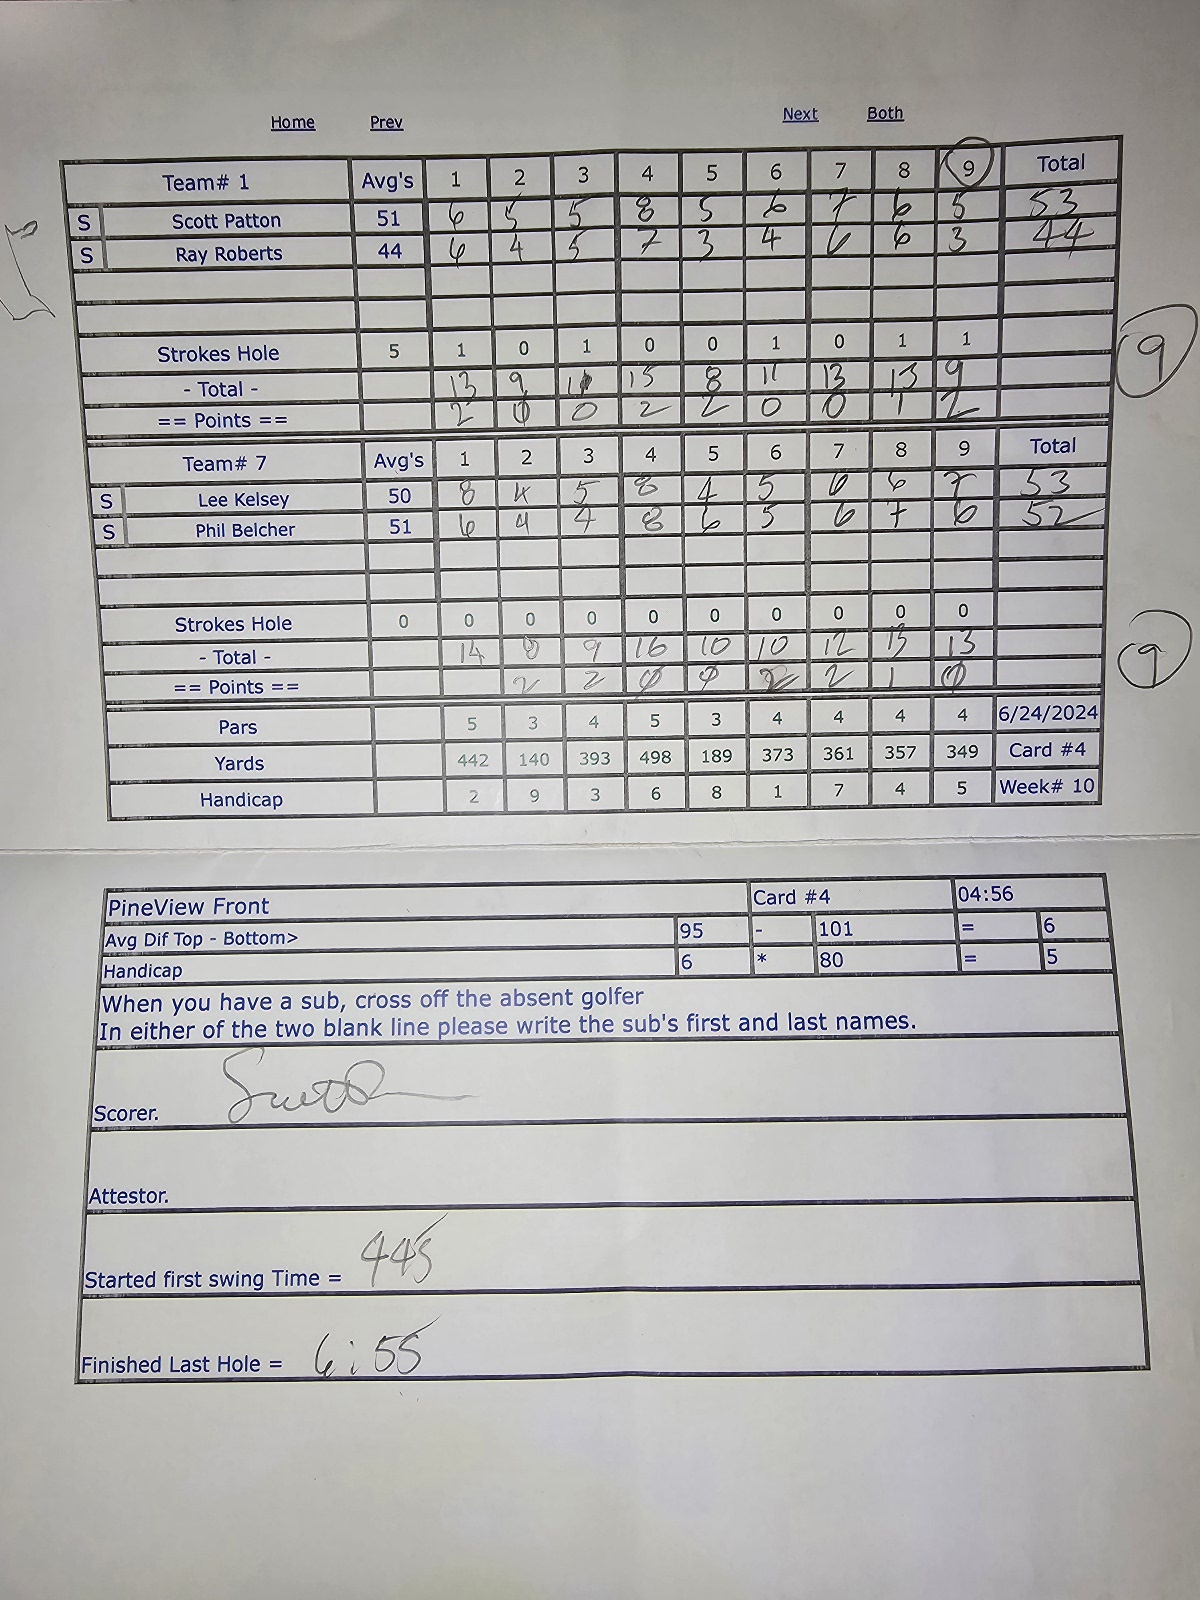 Home Prev Next Both
Team# 1 Avg's 1 2 3 4 5 6 7 8 9 Total
S Scott Patton 51 6 5 5 8 5 6 7 6 5 53
S Ray Roberts 44 6 4 5 7 3 4 6 6 3 44
Strokes Hole 5 1 0 1 0 0 1 0 1 1
9
- Total - 13 9 11 15 8 11 13 13 9
== Points == 2 0 0 2 2 0 0 1 2
Team# 7 Avg's 1 2 3 4 5 6 7 8 9 Total
S Lee Kelsey 50 8 4 5 8 4 5 6 6 7 53
S Phil Belcher 51 6 4 4 8 6 5 6 7 6 52
Strokes Hole 0 0 0 0 0 0 0 0 0 0
- Total - 14 8 9 16 10 10 12 13 13
9
== Points == 2 2 0 0 2 2 1 0
Pars 5 3 4 5 3 4 4 4 4 6/24/2024
Yards 442 140 393 498 189 373 361 357 349 Card #4
Handicap 2 9 3 6 8 1 7 4 5 Week# 10
PineView Front Card #4 04:56
Avg Dif Top - Bottom> 95 - 101 = 6
Handicap 6 * 80 = 5
When you have a sub, cross off the absent golfer
In either of the two blank line please write the sub's first and last names.
Scorer.
Attestor.
Started first swing Time = 445
Finished Last Hole = 6:55